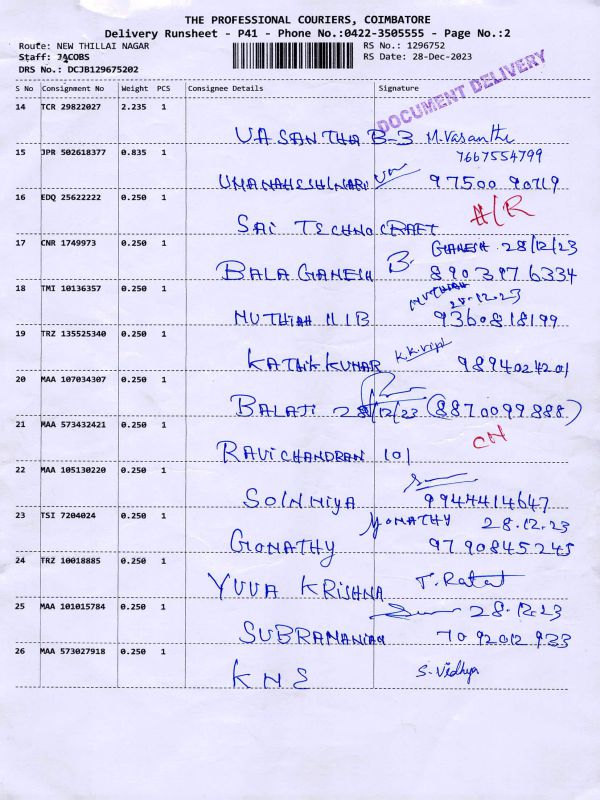 THE PROFESSIONAL COURIERS, COIMBATORE
Delivery Runsheet - P41 - Phone No.:0422-3505555 - Page No.:2
Route: NEW THILLAI NAGAR RS No.: 1296752
Staff: JACOBS RS Date: 28-Dec-2023
DRS No.: DCJB129675202
DOCUMENT DELIVERY
S No Consignment No Weight PCS Consignee Details Signature
14 TCR 29822027 2.235 1
VASANTHA B-3 M.Vasanthi
7667554799
15 JPR 502618377 0.835 1
97500 90719
16 EDQ 25622222 0.250 1
SAI TECHNO CRAFT
17 CNR 1749973 0.250 1
GANESH 28/12/23
BALA GANESH B. 8903976334
18 TMI 10136357 0.250 1
MUTHIAH
28.12.23
MUTHIAH 9360818199
19 TRZ 135525340 0.250 1
KUMAR 9894024201
20 MAA 107034307 0.250 1
BALAJI 28/12/23 (8870099888)
21 MAA 573432421 0.250 1
CN
RAVICHANDRAN 101
22 MAA 105130220 0.250 1
9944414647
23 TSI 7204024 0.250 1
28.12.23
GOMATHY 9790845245
24 TRZ 10018885 0.250 1
YUVA KRISHNA
25 MAA 101015784 0.250 1
28.12.23
SUBRAMANIAN 7092012933
26 MAA 573027918 0.250 1
S. Vidhya